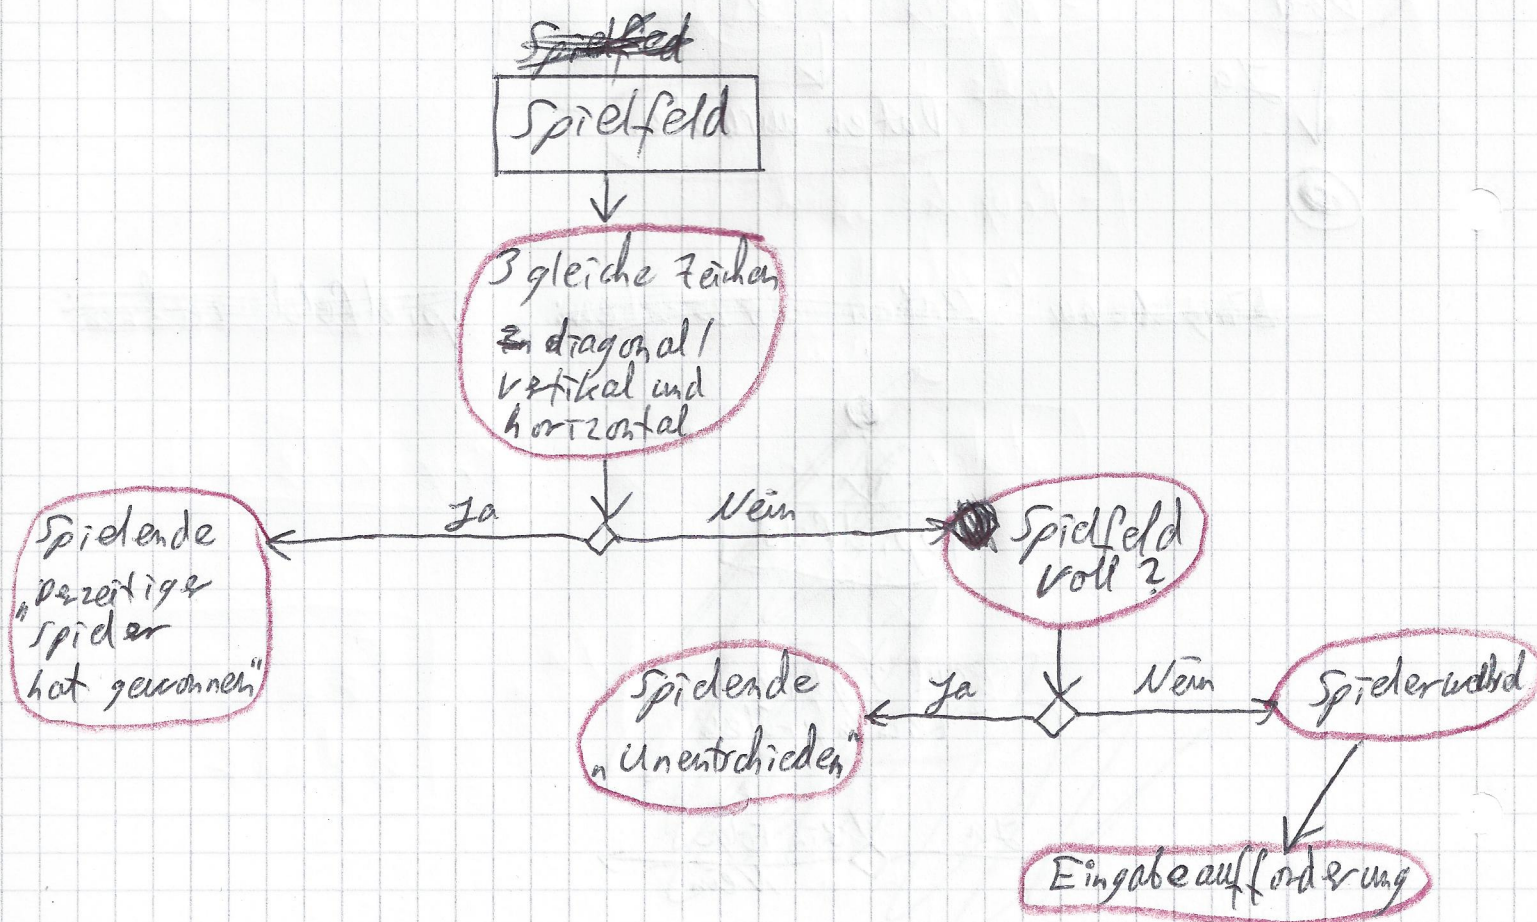 Spielfeld
3 gleiche Zeichen
diagonal /
vertikal und
horizontal
Ja
Nein
Spielende
„Derzeitiger
Spieler
hat gewonnen“
Spielfeld
voll?
Ja
Nein
Spielende
„Unentschieden“
Eingabeaufforderung